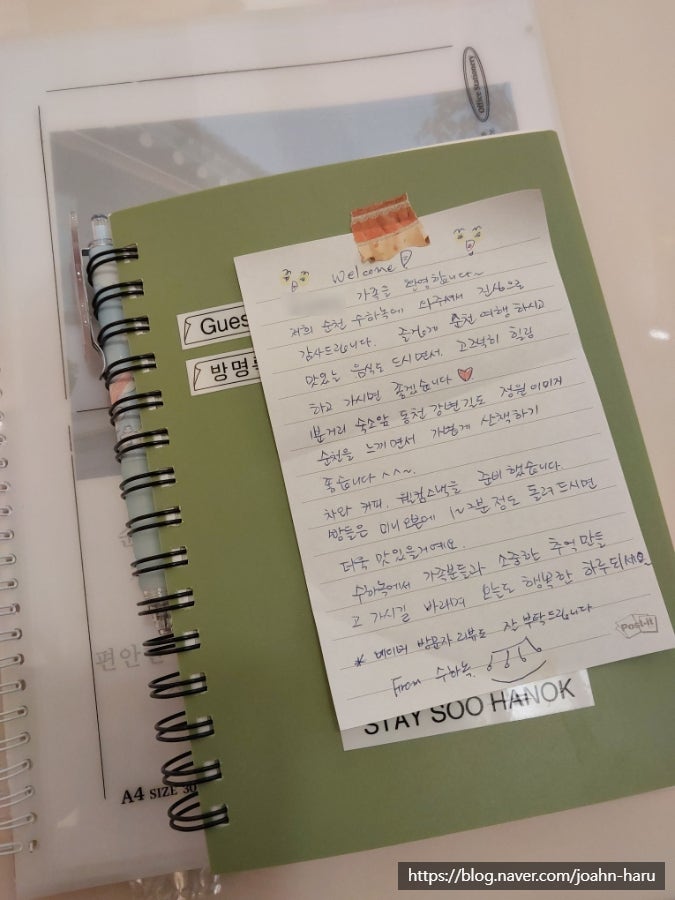 Office Stationery
Welcome
가족을 환영합니다~
저희 순천 수하녹에 와주셔서 진심으로
감사드립니다. 즐겁게 순천 여행 하시고
맛있는 음식도 드시면서 고즈넉히 힐링
하고 가시면 좋겠습니다
1분거리 숙소앞 동천 강변길도 정원이미지
순천을 느끼면서 가볍게 산책하기
좋습니다 ^^~.
차와 커피, 웰컴스낵을 준비했습니다.
빵들은 미니오븐에 1~2분 정도 돌려드시면
더욱 맛있을거예요.
수하녹에서 가족분들과 소중한 추억 만들
고 가시길 바래며 오늘도 행복한 하루되세요
* 네이버 방문자 리뷰도 잘 부탁드립니다
From 수하녹.
Post-it
Gues
방명록
STAY SOO HANOK
편안
A4 SIZE 30
https://blog.naver.com/joahn-haru